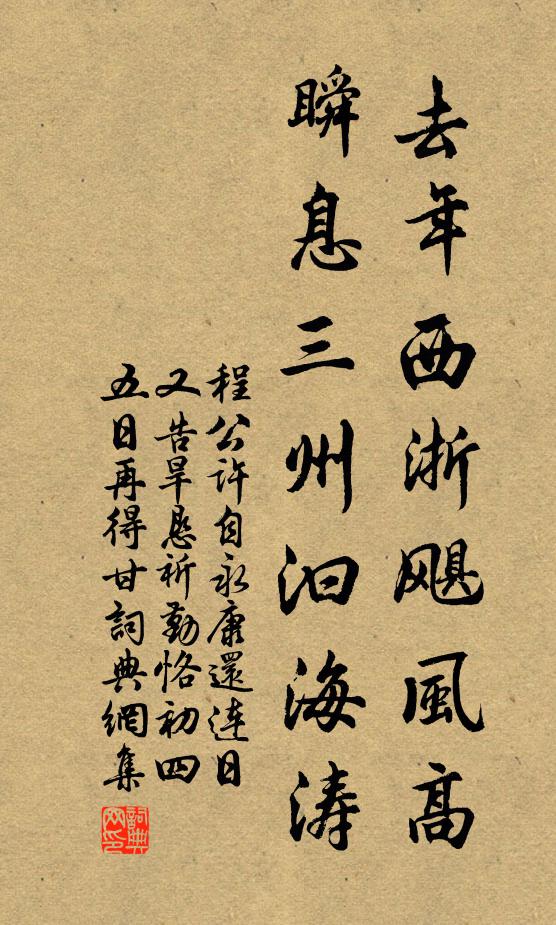 去年西浙颶風高
瞬息三州汩海涛
程公許自永康還连日
又告旱恳祈勤恪初四
五日再得甘詞典網集
詞典网印